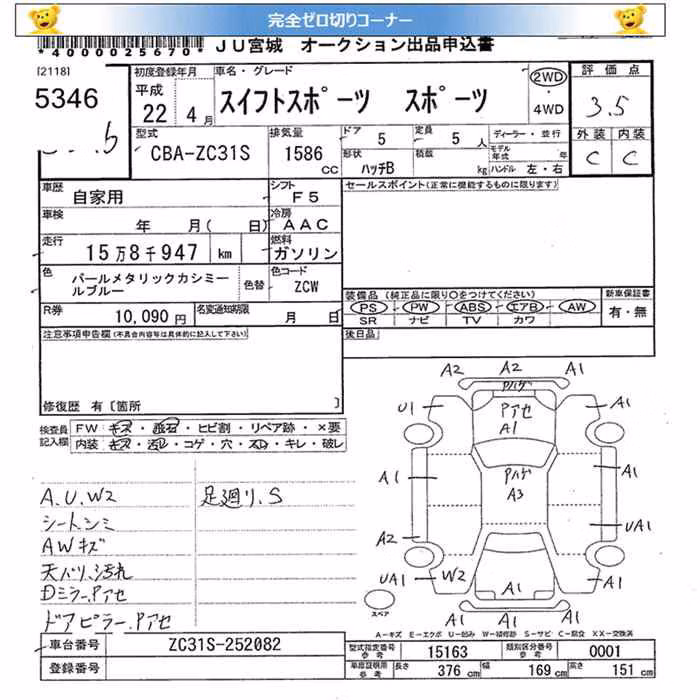 完全ゼロ切りコーナー
*4000025670* JU宮城 オークション出品申込書
[2118] 5346
初度登録年月 平成 22 4月
車名・グレード スイフトスポーツ スポーツ
2WD ・ 4WD
評価点 3.5
外装 内装
C C
型式 CBA-ZC31S
排気量 1586 cc
ドア 5 定員 5 人
形状 ハッチB 積載 kg
ディーラー・並行
モデル年式 年
ハンドル 左・右
車歴 自家用
シフト F5
車検 年 月( 日)
冷房 AAC
走行 15万8千947 km
燃料 ガソリン
色 パールメタリックカシミールブルー 色替
色コード ZCW
R券 10,090 円
名変通知期限 月 日
セールスポイント(正常に機能するものに限ります)
装備品(純正品に限り○をつけてください)
PS PW ABS エアB AW
SR ナビ TV カワ
新車保証書 有・無
後日品
注意事項申告欄(不具合内容等は具体的に記入して下さい)
修復歴 有〔箇所 〕
検査員記入欄
FW キズ・飛石・ヒビ割・リペア跡・×要
内装 キズ・汚レ・コゲ・穴・スレ・キレ・破レ
A.U.W2 足廻り.S
シート.シミ
AWキズ
天バリ.汚れ
Dミラー.Pアセ
ドアピラー.Pアセ
A2 A2 A1
Pハゲ
U1 Pアセ A1 A1
A1 Pハゲ A3 A1
A2 UA1
UA1 W2 A1 A1
A1 A1 A1
スペア
A－キズ E－エクボ U－凹み W－補修跡 S－サビ C－腐食 XX－交換済
車台番号 ZC31S-252082
登録番号
型式指定番号 参考 15163 類別区分番号 参考 0001
車庫証明用 参考 長さ 376 cm 幅 169 cm 高さ 151 cm